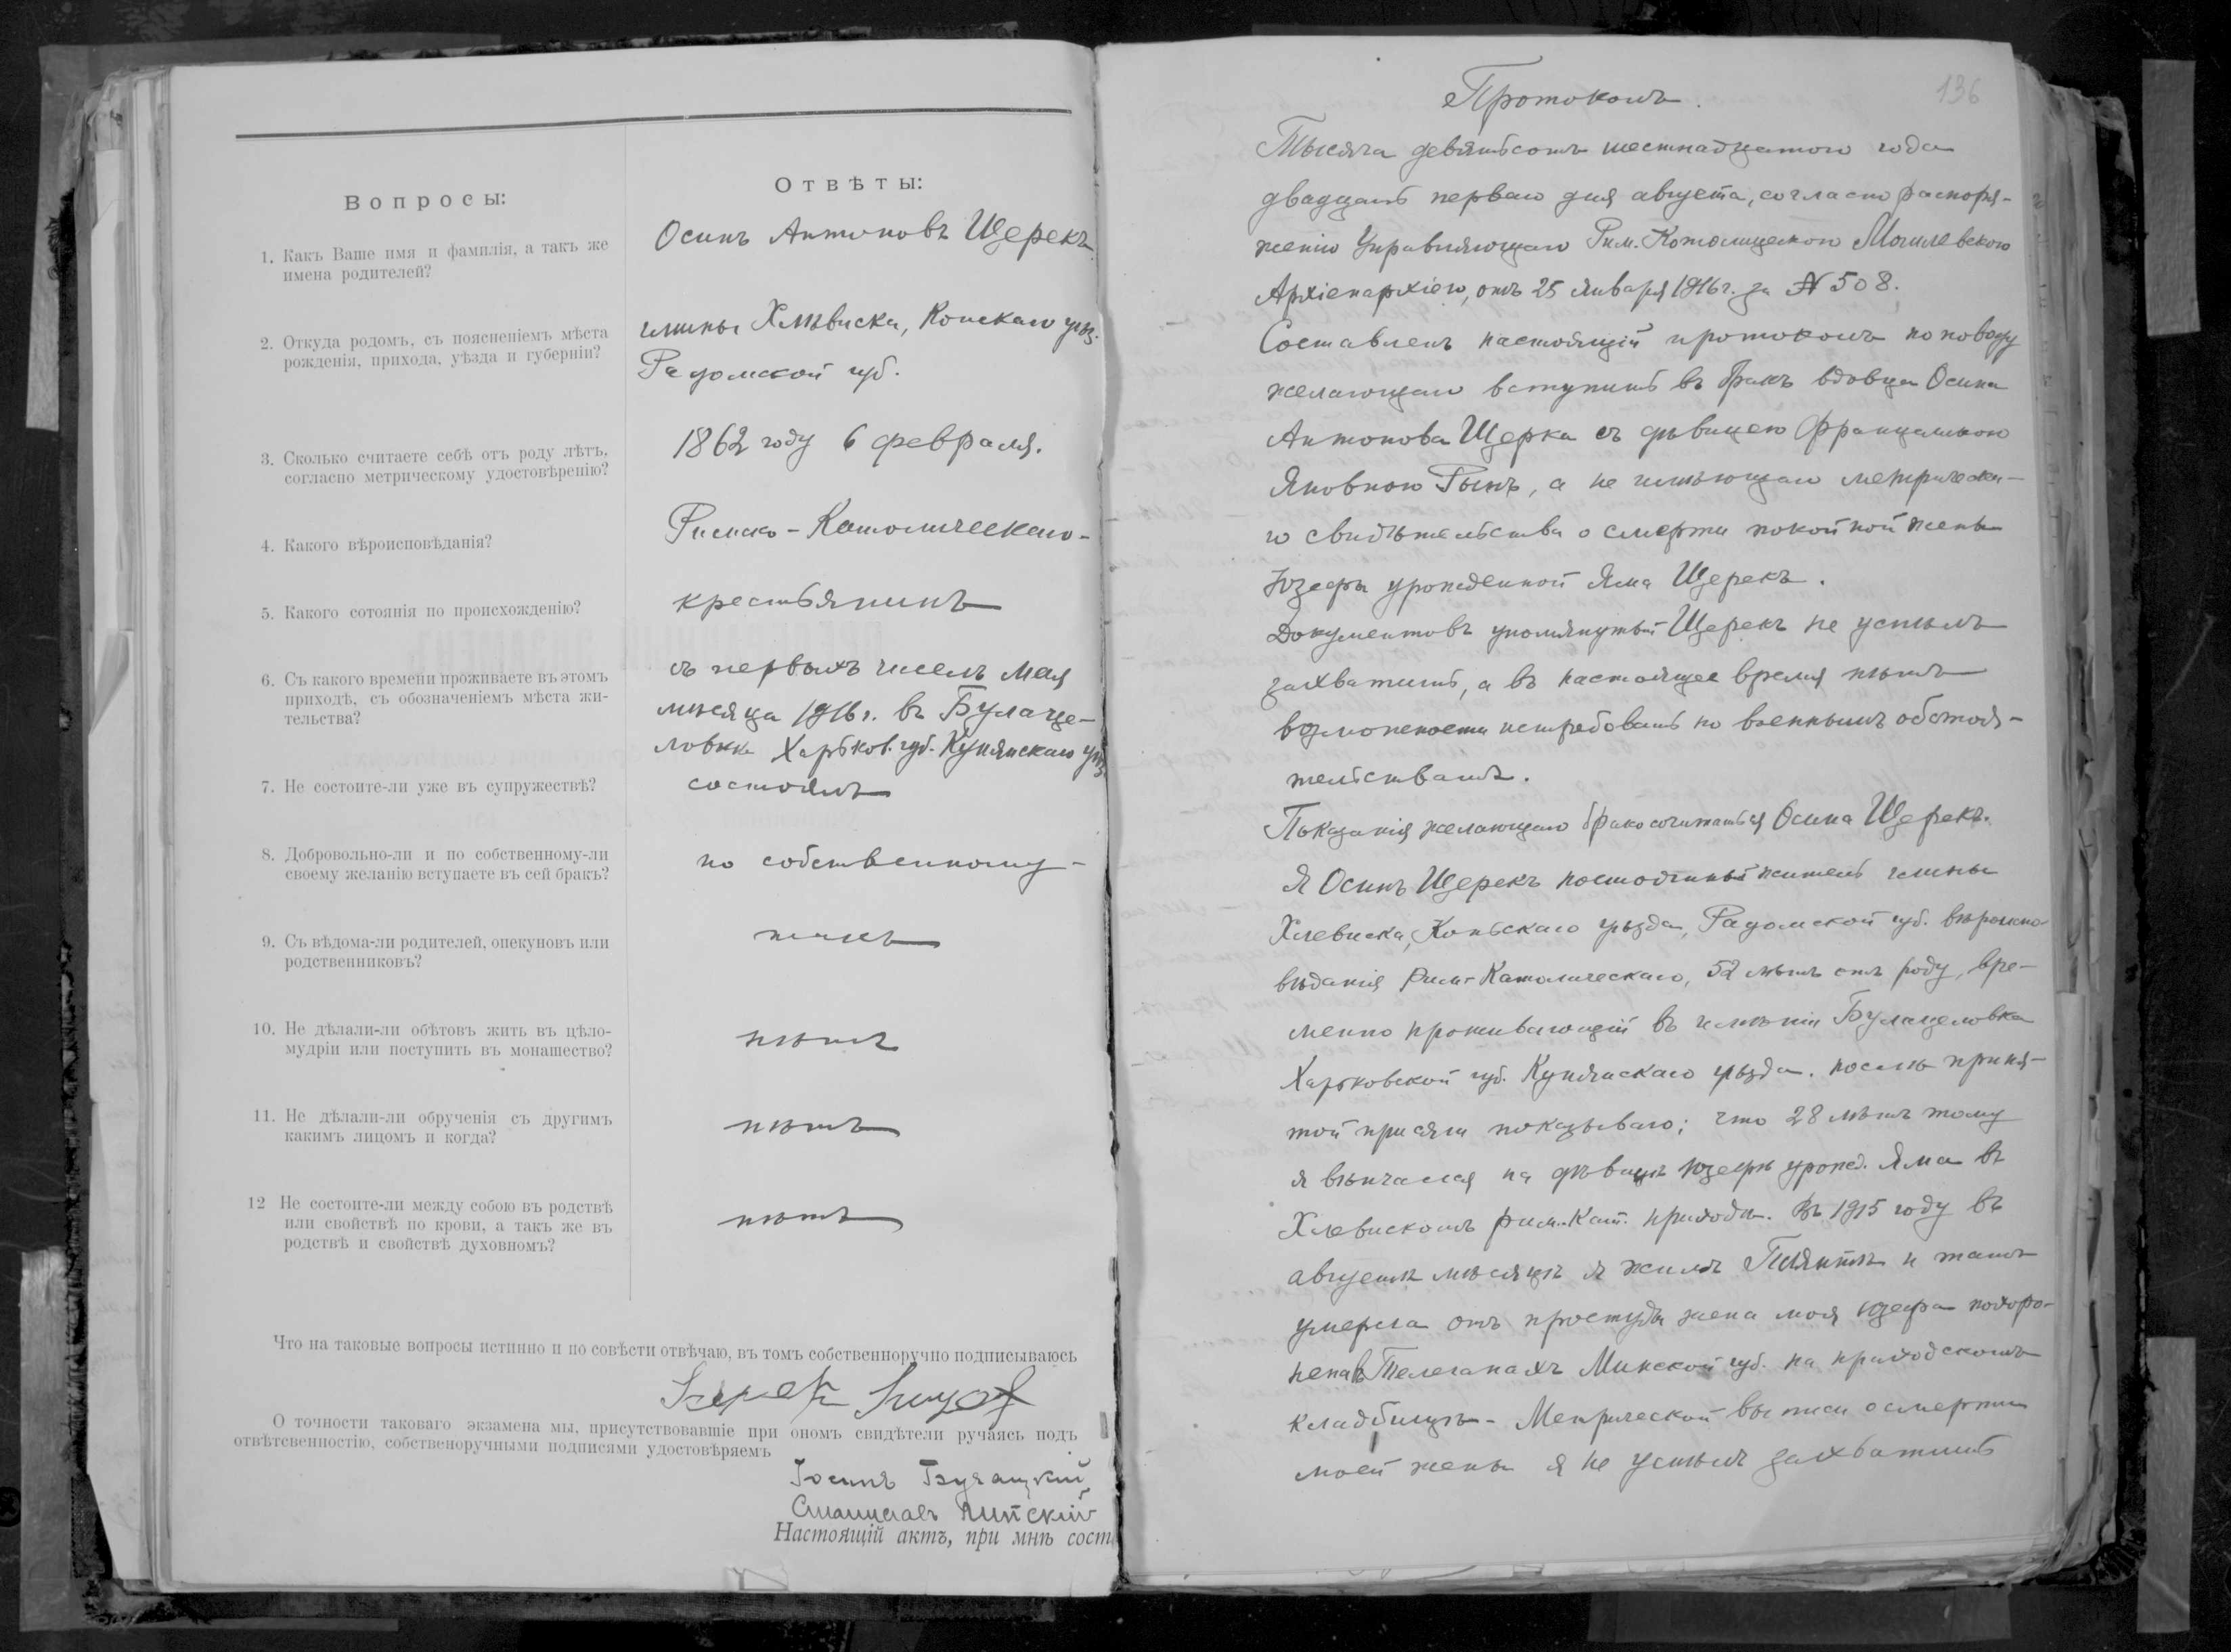 Вопросы:
Отвѣты:
1. Какъ Ваше имя и фамилія, а такъ же
имена родителей?
Осипъ Антоновъ Щерекъ
2. Откуда родомъ, съ поясненіемъ мѣста
рожденія, прихода, уѣзда и губерніи?
гмины Хлѣвиска, Конскаго уѣз.
Радомской губ.
3. Сколько считаете себѣ отъ роду лѣтъ,
согласно метрическому удостовѣренію?
1862 году 6 февраля.
4. Какого вѣроисповѣданія?
Римско-Католическаго-
5. Какого сотоянія по происхожденію?
крестьянинъ
6. Съ какого времени проживаете въ этомъ
приходѣ, съ обозначеніемъ мѣста жи-
тельства?
съ первыхъ чиселъ мая
мѣсяца 1916 г. въ Булаце-
ловкѣ Харьков. губ. Купянскаго уѣз
7. Не состоите-ли уже въ супружествѣ?
состоялъ
8. Добровольно-ли и по собственному-ли
своему желанію вступаете въ сей бракъ?
по собственному-
9. Съ вѣдома-ли родителей, опекуновъ или
родственниковъ?
10. Не дѣлали-ли обѣтовъ жить въ цѣло-
мудріи или поступить въ монашество?
нѣтъ
11. Не дѣлали-ли обрученія съ другимъ
какимъ лицомъ и когда?
нѣтъ
12 Не состоите-ли между собою въ родствѣ
или свойствѣ по крови, а такъ же въ
родствѣ и свойствѣ духовномъ?
нѣтъ
Что на таковые вопросы истинно и по совѣсти отвѣчаю, въ томъ собственноручно подписываюсь
О точности таковаго экзамена мы, присутствовавшіе при ономъ свидѣтели ручаясь подъ
отвѣтсвенностію, собственоручными подписями удостовѣряемъ
Станиславъ
Настоящій актъ, при мнѣ сост
136
Протоколъ.
Тысяча девятьсотъ шестнадцатого года
двадцать перваго дня августа, согласно распоря-
женію Управляющаго Рим. Католическою Могилевскою
Архіепархіею, отъ 25 января 1916 г. за № 508.
Составленъ настоящій протоколъ по поводу
желающаго вступить въ бракъ вдовца Осипа
Антонова Щерка съ дѣвицею Францишкою
Яковною Рынъ, а не имѣющаго метрическа-
го свидѣтельства о смерти покойной жены
Юзефы урожденной Яма Щерекъ.
Документовъ упомянутый Щерекъ не успѣлъ
захватить, а въ настоящее время нѣтъ
возможности истребовать по военнымъ обстоя-
тельствамъ.
Показанія желающаго бракосочитаться Осипа Щерекъ.
Я Осипъ Щерекъ постоянный житель гмины
Хлевиска, Коньскаго уѣзда, Радомской губ. вѣроиспо-
вѣданія Рим-Католическаго, 52 лѣтъ отъ роду, вре-
менно проживающій въ имѣніи Булацеловка
Харьковской губ. Купянскаго уѣзда. послѣ приня-
той присяги показываю; что 28 лѣтъ тому
я вѣнчался на дѣвицѣ Юзефѣ урожд. Яма въ
Хлевискомъ рим. Кат. приходѣ. Въ 1915 году въ
августѣ мѣсяцѣ я жилъ и тамъ
умерла отъ простуды жена моя Юзефа похоро-
нена въ Телеханахъ Минской губ. на приходскомъ
кладбищѣ - Метрической выписи о смерти
моей жены я не успѣлъ захватить